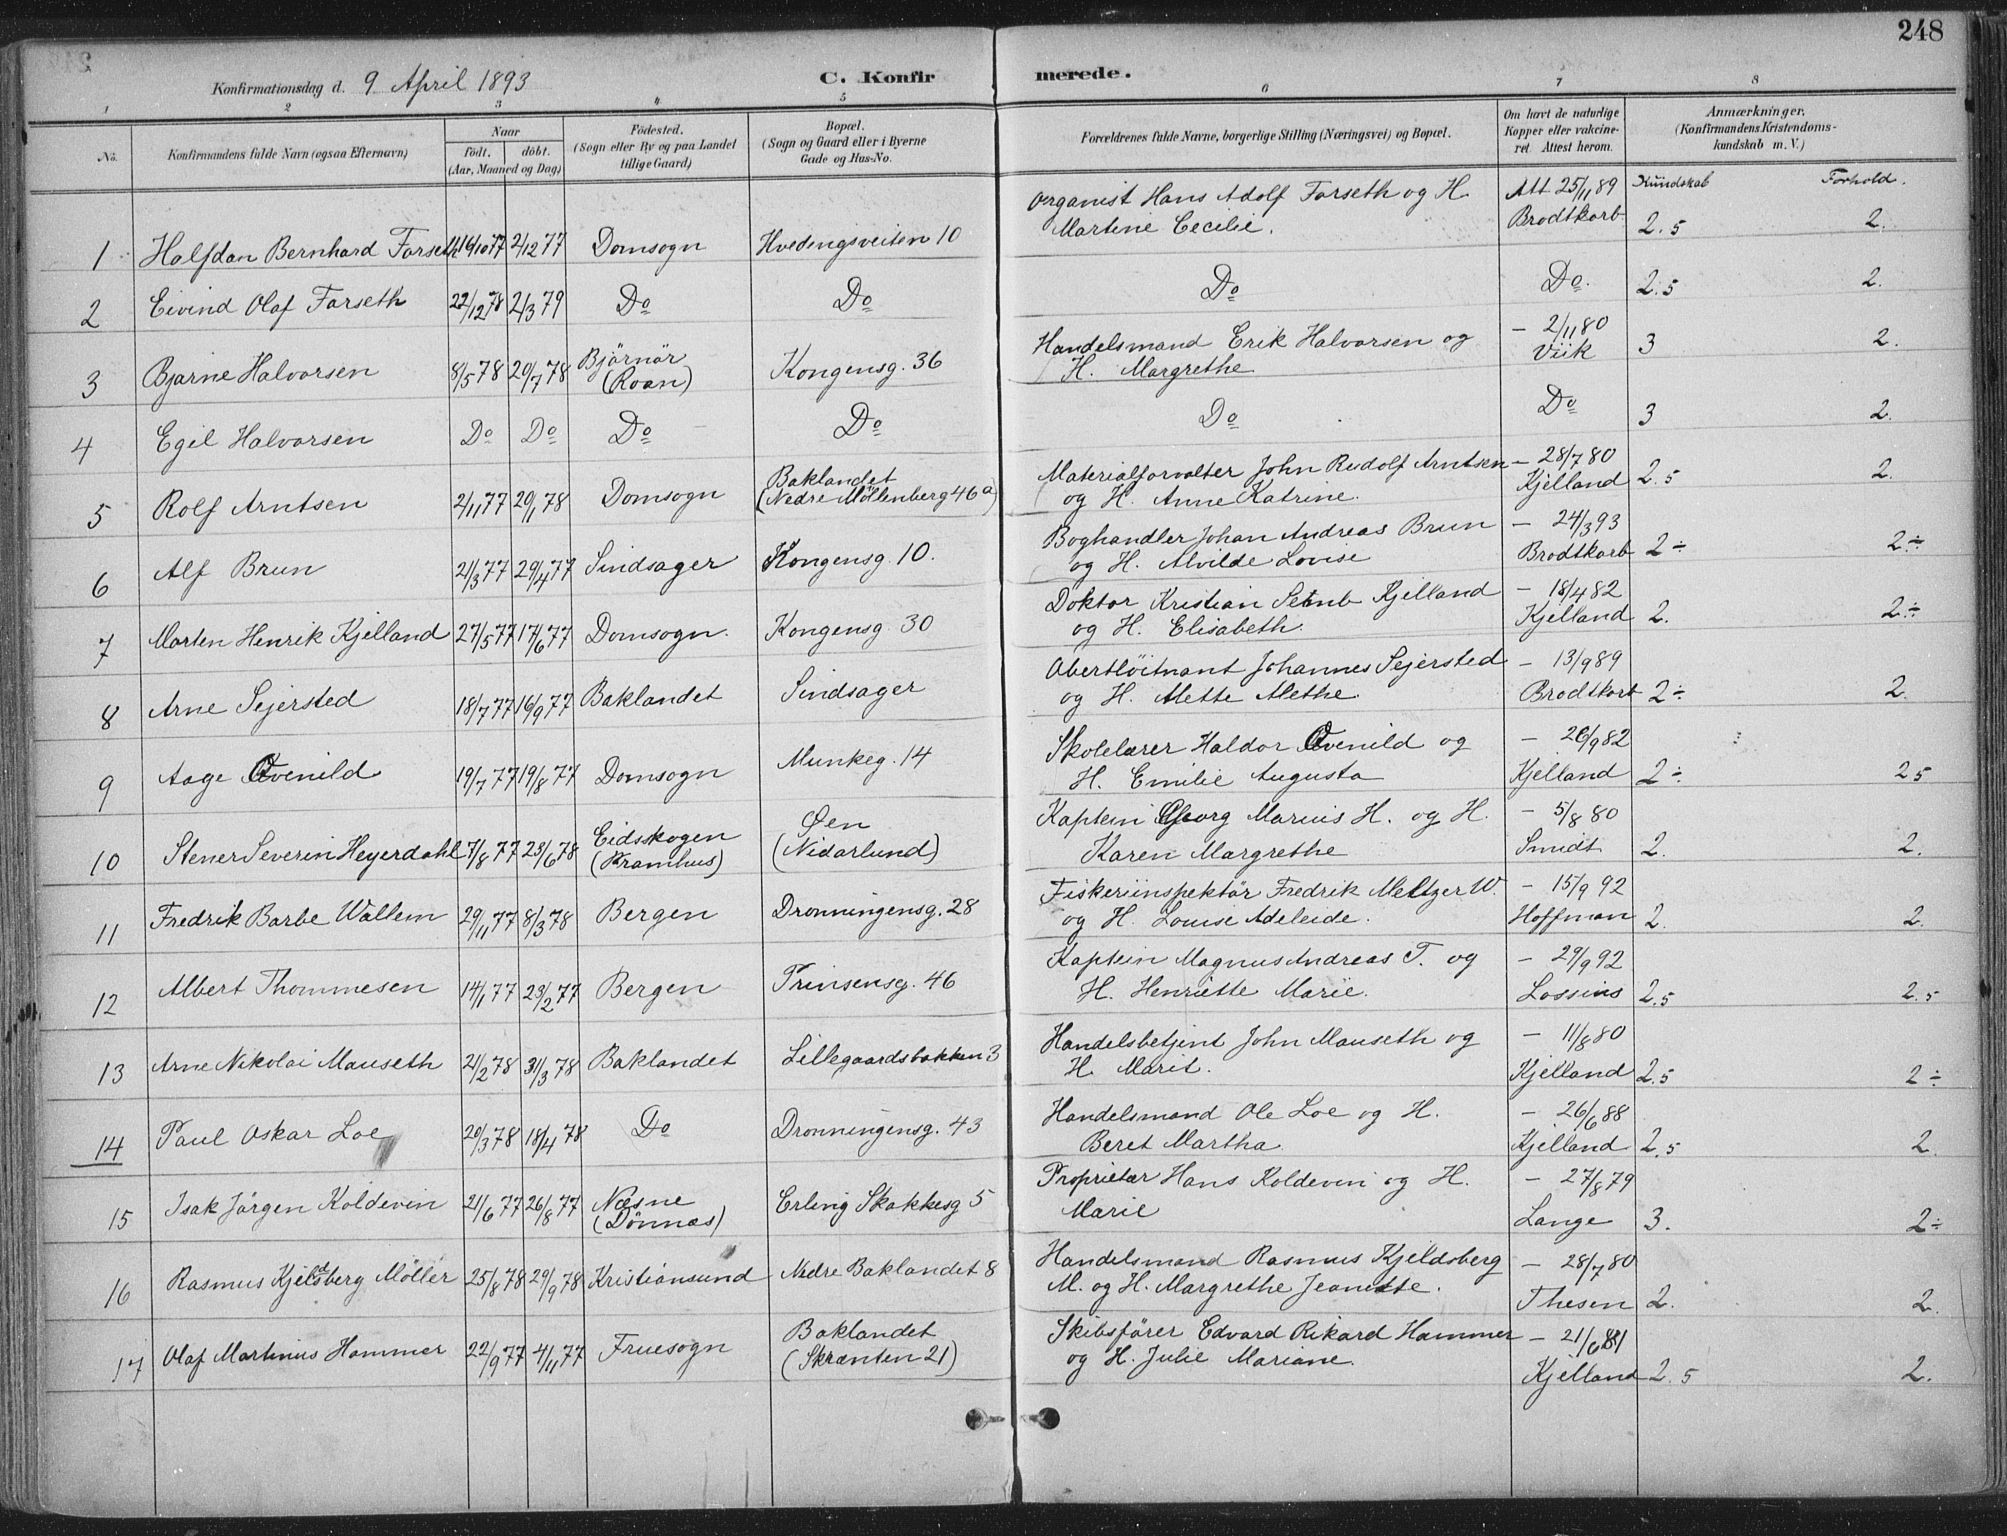 248
Konfirmationsdag d. 9 April 1893
C. Konfirmerede.
1 2 3 4 5 6 7 8
No. Konfirmandens fulde Navn (ogsaa Efternavn) Naar födt. döbt. (Aar, Maaned og Dag) Födested. (Sogn eller By og paa Landet tillige Gaard) Bopæl. (Sogn og Gaard eller i Byerne Gade og Hus-No. Forældrenes fulde Navne, borgerlige Stilling (Næringsvei) og Bopæl. Om havt de naturlige Kopper eller vakcineret Attest herom. Anmærkninger. (Konfirmandens Kristendomskundskab m. V.)
Kundskab Forhold.
1 Halfdan Bernhard Forseth 19/10 77 2/12 77 Domsogn Hvedingsveiten 10 Organist Hans Adolf Forseth og H. Martine Cecilie. Att 25/11 89 Brodtkorb 2.5 2.
2 Eivind Olaf Forseth 22/12 78 2/3 79 Do Do Do Do. 2.5 2.
3 Bjarne Halvorsen 8/5 78 20/7 78 Björnör (Roan) Kongensg. 36 Handelsmand Erik Halvorsen og H. Margrethe — 2/11 80 Viik 3 2.
4 Egil Halvorsen Do Do Do Do Do Do 3 2.
5 Rolf Arntsen 2/11 77 20/1 78 Domsogn Baklandet (Nedre Möllenberg 46a) Materialforvalter John Rudolf Arntsen og H. Anne Katrine. — 28/7 80 Kjelland 2.5 2.
6 Alf Brun 21/3 77 29/4 77 Sindsager Kongensg. 10. Boghandler Johan Andreas Brun og H. Alvilde Lovise — 24/3 93 Brodtkorb 2÷ 2÷
7 Morten Henrik Kjelland 27/5 77 17/6 77 Domsogn. Kongensg. 30 Doktor Kristian Kjelland og H. Elisabeth. — 18/4 82 Kjelland 2. 2÷
8 Arne Sejersted 18/7 77 16/9 77 Baklandet Sindsager Oberstlöitnant Johannes Sejersted og H. Mette Methe. — 13/9 89 Brodtkorb 2÷ 2.
9 Aage Ovenild 19/7 77 19/8 77 Domsogn Munkeg. 14 Skolelærer Haldor Ovenild og H. Emilie Augusta — 26/9 82 Kjelland 2÷ 25
10 Stener Severin Heyerdahl 7/8 77 23/6 78 Eidskogen (Pramhus) Øen (Nidarlund) Kaptein Georg Marius H. og H. Karen Margrethe — 5/8 80 Smidt 2. 2.
11 Fredrik Barbe Wallem 29/11 77 8/3 78 Bergen Dronningensg. 28 Fiskeriinspektör Fredrik Meltzer W. og H. Louise Adeleide. — 15/9 92 Hoffman 2. 2.
12 Albert Thommesen 14/1 77 23/2 77 Bergen Prinsensg. 46 Kaptein Magnus Andreas T. og H. Henriette Marie. — 29/9 92 Lossius 2.5 2.5
13 Arne Nikolai Mauseth 21/2 78 31/3 78 Baklandet Lillegaardsbakken 3 Handelsbetjent John Mauseth og H. Marit. — 11/8 80 Kjelland 2.5 2÷
14 Paul Oskar Loe 20/3 78 18/4 78 Do Dronningensg. 43 Handelsmand Ole Loe og H. Beret Martha. — 26/6 88 Kjelland 2.5 2.
15 Isak Jörgen Koldevin 21/6 77 26/8 77 Næsne (Dönnæs) Erling Skakkesg 5 Proprietær Hans Koldevin og H. Marie — 27/8 79 Lange 3. 2÷
16 Rasmus Kjeldsberg Möller 25/8 78 29/9 78 Kristiansund Nedre Baklandet 8 Handelsmand Rasmus Kjeldsberg M. og H. Margrethe Jeanette. — 28/7 80 Thesen 2. 2.
17 Olaf Martinus Hammer 22/9 77 4/11 77 Fruesogn Baklandet (Skrænten 21) Skibsförer Edvard Rikard Hammer og H. Julie Mariane. — 21/6 81 Kjelland 2.5 2.